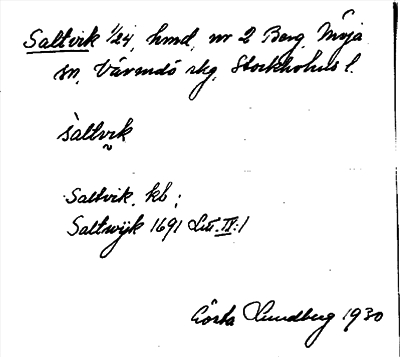 Saltvik 1/24, hmd. nr 2 Berg, Möja
sn, Värmdö skg, Stockholms l.
sàltvik
Saltvik. kb;
Saltwijk 1691 Litt. IV:1
Gösta Lundberg 1930